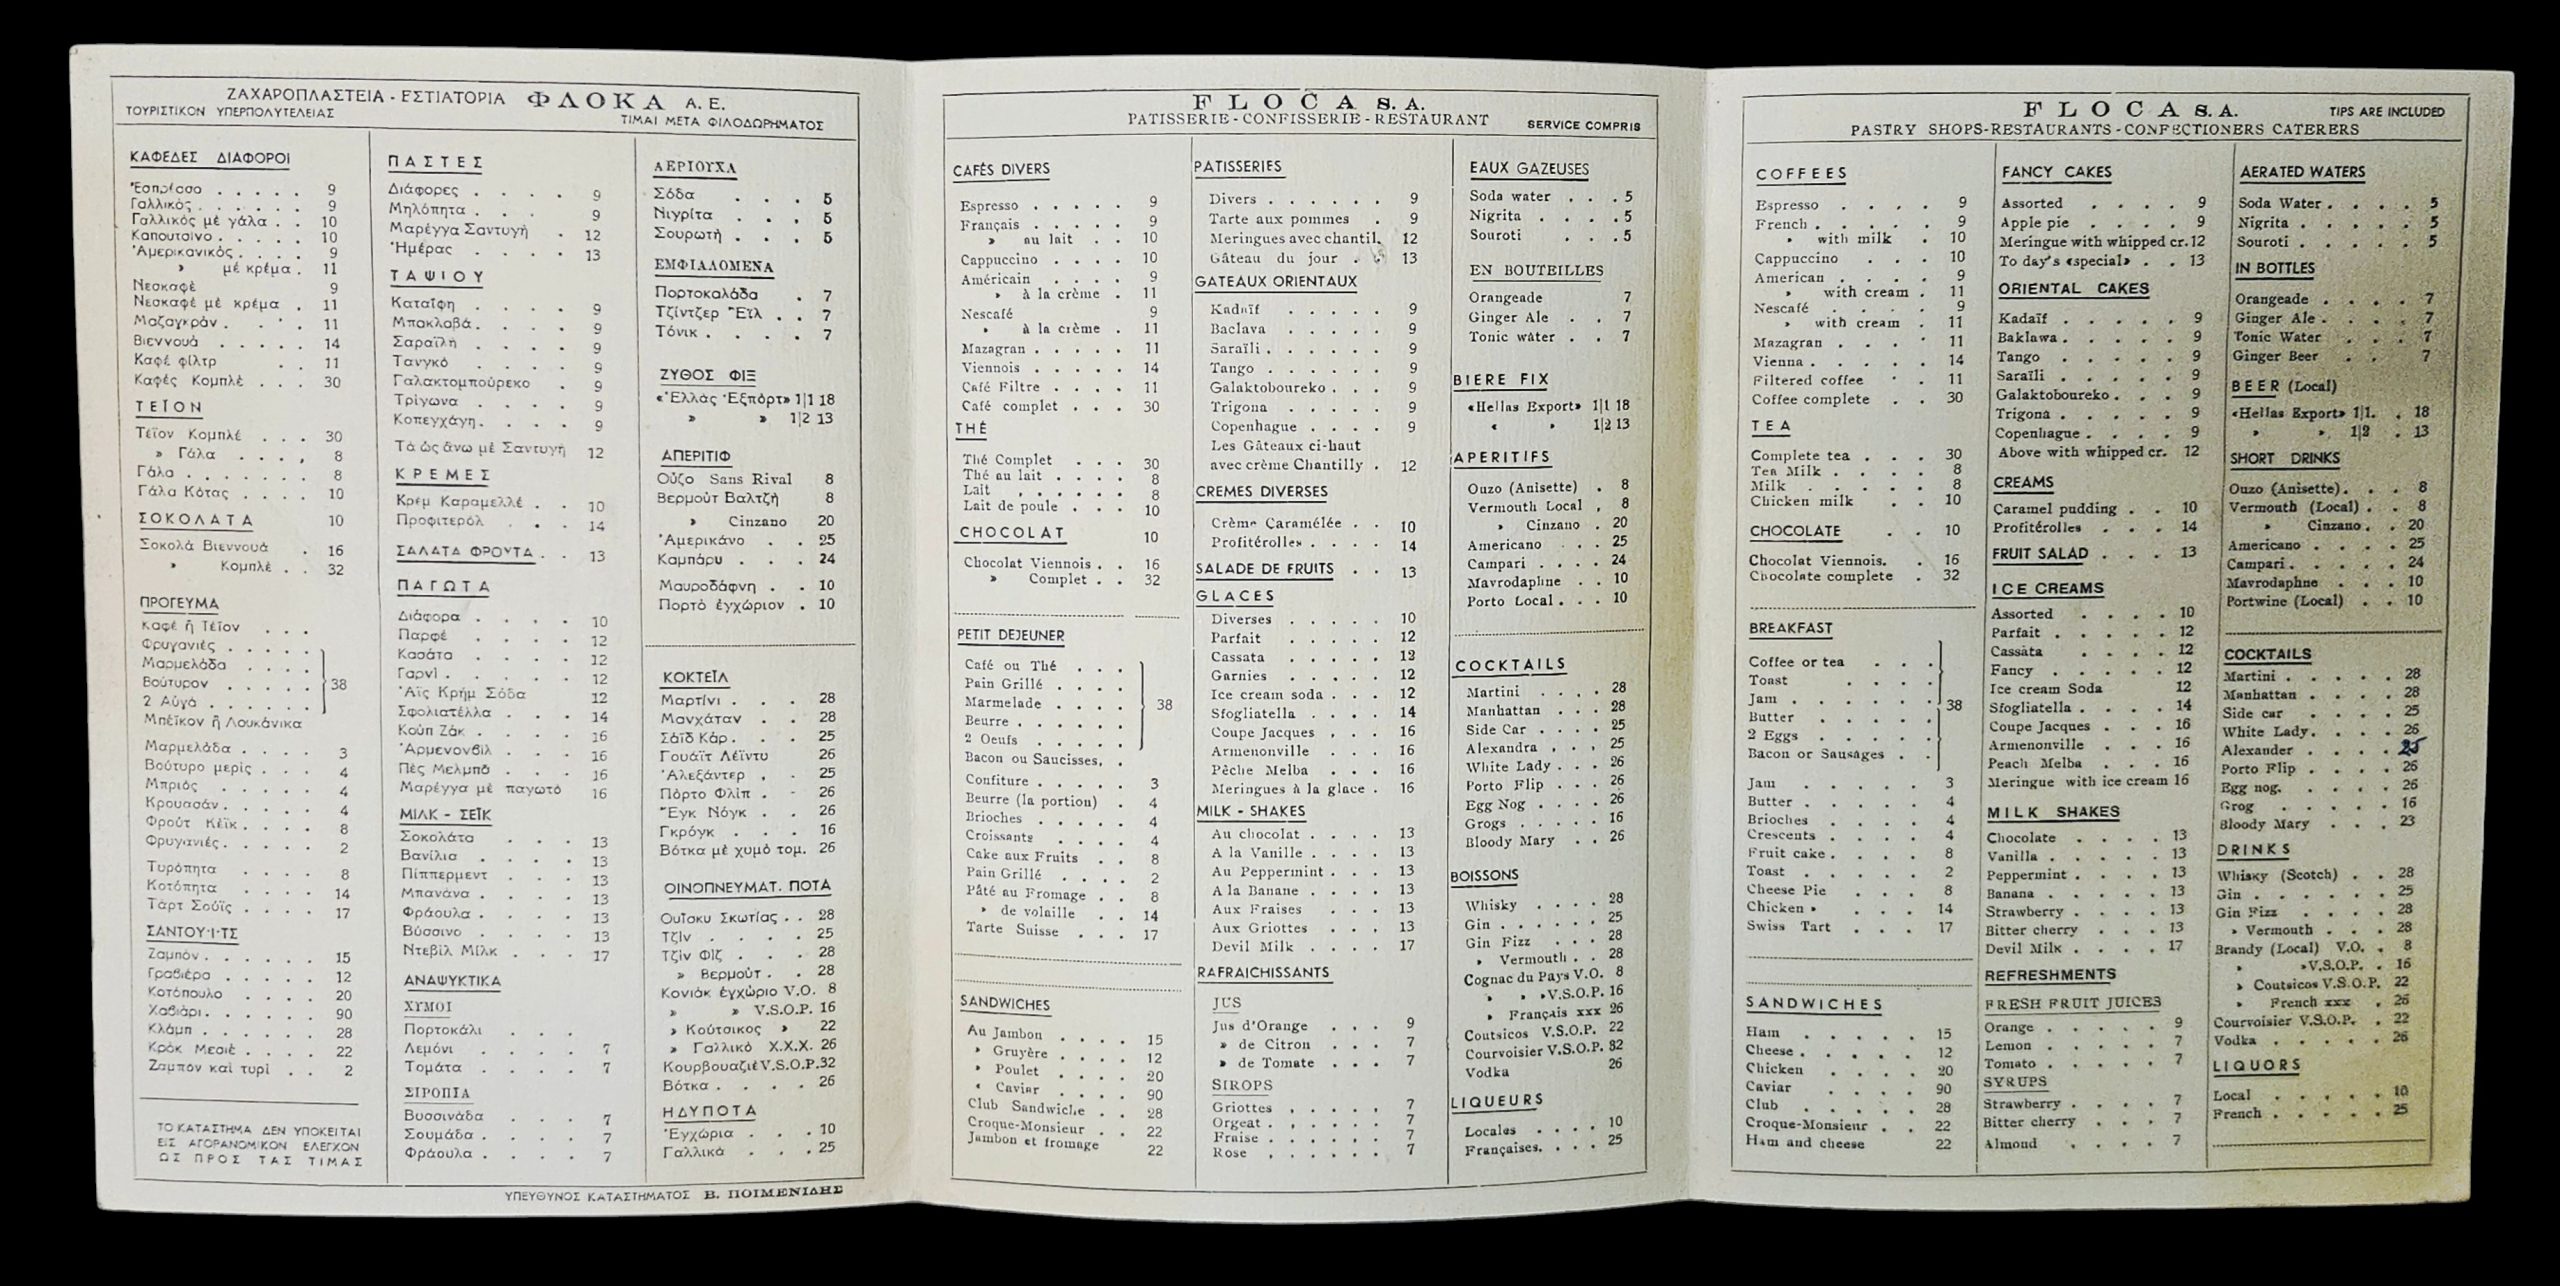 ΖΑΧΑΡΟΠΛΑΣΤΕΙΑ - ΕΣΤΙΑΤΟΡΙΑ ΦΛΟΚΑ Α. Ε.
ΤΟΥΡΙΣΤΙΚΟΝ ΥΠΕΡΠΟΛΥΤΕΛΕΙΑΣ
ΤΙΜΑΙ ΜΕΤΑ ΦΙΛΟΔΩΡΗΜΑΤΟΣ
ΚΑΦΕΔΕΣ ΔΙΑΦΟΡΟΙ
Ἐσπρέσσο . . . . . 9
Γαλλικός . . . . . . 9
Γαλλικός μέ γάλα . . 10
Καπουτσίνο . . . . . 10
Ἀμερικανικός . . . . 9
» μέ κρέμα . 11
Νεσκαφὲ 9
Νεσκαφὲ μὲ κρέμα . 11
Μαζαγκράν . . . . 11
Βιεννουά . . . . . 14
Καφέ φίλτρ . . 11
Καφές Κομπλὲ . . . 30
ΤΕΪΟΝ
Τέϊον Κομπλέ . . . 30
» Γάλα . . . . 8
Γάλα . . . . . . . 8
Γάλα Κότας . . . . 10
ΣΟΚΟΛΑΤΑ 10
Σοκολὰ Βιεννουά . 16
» Κομπλέ . . 32
ΠΡΟΓΕΥΜΑ
Καφέ ἢ Τέϊον . . .
Φρυγανιές . . . . .
Μαρμελάδα . . . .
Βούτυρον . . . . . 38
2 Αὐγά . . . . . .
Μπέϊκον ἢ Λουκάνικα
Μαρμελάδα . . . . 3
Βούτυρο μερίς . . . 4
Μπριός . . . . . 4
Κρουασάν . . . . . 4
Φρούτ Κέϊκ . . . . 8
Φρυγανιές . . . . . 2
Τυρόπητα . . . . 8
Κοτόπητα . . . . 14
Τάρτ Σουΐς . . . . 17
ΣΑΝΤΟΥ·Ι·ΤΣ
Ζαμπόν . . . . . . 15
Γραβιέρα . . . . . 12
Κοτόπουλο . . . . 20
Χαβιάρι . . . . . . 90
Κλάμπ . . . . . . 28
Κρόκ Μεσιέ . . . . 22
Ζαμπόν καὶ τυρί . . 2
ΤΟ ΚΑΤΑΣΤΗΜΑ ΔΕΝ ΥΠΟΚΕΙΤΑΙ
ΕΙΣ ΑΓΟΡΑΝΟΜΙΚΟΝ ΕΛΕΓΧΟΝ
ΩΣ ΠΡΟΣ ΤΑΣ ΤΙΜΑΣ
ΠΑΣΤΕΣ
Διάφορες . . . . 9
Μηλόπητα . . . 9
Μαρέγγα Σαντυγὴ . 12
Ἡμέρας . . . . 13
ΤΑΨΙΟΥ
Καταΐφη . . . . . 9
Μπακλαβά . . . . . 9
Σαραϊλή . . . . . 9
Τανγκό . . . . . 9
Γαλακτομπούρεκο . 9
Τρίγωνα . . . . . 9
Κοπεγχάγη . . . . . 9
Τὰ ὡς ἄνω μὲ Σαντυγὴ 12
ΚΡΕΜΕΣ
Κρεμ Καραμελλέ . . 10
Προφιτερόλ . . . 14
ΣΑΛΑΤΑ ΦΡΟΥΤΑ . . 13
ΠΑΓΩΤΑ
Διάφορα . . . . . 10
Παρφέ . . . . . 12
Κασάτα . . . . . 12
Γαρνὶ . . . . . . 12
Ἀϊς Κρήμ Σόδα 12
Σφολιατέλλα . . . 14
Κούπ Ζάκ . . . . . 16
Ἀρμενονβίλ . . . 16
Πὲς Μελμπὰ . . . 16
Μαρέγγα μὲ παγωτό 16
ΜΙΛΚ - ΣΕΪΚ
Σοκολάτα . . . . 13
Βανίλια . . . . . 13
Πίππερμεντ . . . 13
Μπανάνα . . . . . 13
Φράουλα . . . . . 13
Βύσσινο . . . . 13
Ντέβιλ Μίλκ . . . 17
ΑΝΑΨΥΚΤΙΚΑ
ΧΥΜΟΙ
Πορτοκάλι . . .
Λεμόνι . . . . 7
Τομάτα . . . . . 7
ΣΙΡΟΠΙΑ
Βυσσινάδα . . . 7
Σουμάδα . . . . 7
Φράουλα . . . . . 7
ΑΕΡΙΟΥΧΑ
Σόδα . . . 5
Νιγρίτα . . . 5
Σουρωτὴ . . . . 5
ΕΜΦΙΑΛΟΜΕΝΑ
Πορτοκαλάδα . 7
Τζίντζερ Ἔϊλ . . 7
Τόνικ . . . . . 7
ΖΥΘΟΣ ΦΙΞ
«Ἑλλὰς Ἐξπόρτ» 1|1 18
» » 1|2 13
ΑΠΕΡΙΤΙΦ
Οὖζο Sans Rival 8
Βερμούτ Βαλτζῆ 8
» Cinzano 20
Ἀμερικάνο . . 25
Καμπάρυ . . . 24
Μαυροδάφνη . . 10
Πορτὸ ἐγχώριον . 10
ΚΟΚΤΕΪΛ
Μαρτίνι . . . . 28
Μανχάταν . . . 28
Σάϊδ Κάρ . . . . 25
Γουάϊτ Λέϊντυ 26
Ἀλεξάντερ . . . 25
Πόρτο Φλίπ . . 26
Ἔγκ Νόγκ . . . 26
Γκρόγκ . . . . 16
Βότκα μὲ χυμὸ τομ. 26
ΟΙΝΟΠΝΕΥΜΑΤ. ΠΟΤΑ
Οὐΐσκυ Σκωτίας . . 28
Τζὶν . . . . . . 25
Τζὶν Φὶζ . . . . 28
» Βερμούτ . . 28
Κονιὰκ ἐγχώριο V.O. 8
» » V.S.O.P. 16
» Κούτσικος » 22
» Γαλλικὸ Χ.Χ.Χ. 26
Κουρβουαζιέ V.S.O.P. 32
Βότκα . . . . . 26
ΗΔΥΠΟΤΑ
Ἐγχώρια . . . . 10
Γαλλικὰ . . . . 25
ΥΠΕΥΘΥΝΟΣ ΚΑΤΑΣΤΗΜΑΤΟΣ Β. ΠΟΙΜΕΝΙΔΗΣ
FLOCA S. A.
PATISSERIE - CONFISSERIE - RESTAURANT
SERVICE COMPRIS
CAFÉS DIVERS
Espresso . . . . . 9
Français . . . . . 9
» au lait . . 10
Cappuccino . . . . 10
Américain . . . . 9
» à la crème . 11
Nescafé 9
» à la crème . 11
Mazagran . . . . . 11
Viennois . . . . . 14
Café Filtre . . . . 11
Café complet . . . 30
THÉ
Thé Complet . . . 30
Thé au lait . . . . 8
Lait . . . . . . 8
Lait de poule . . . . 10
CHOCOLAT 10
Chocolat Viennois . . 16
» Complet . . 32
PETIT DEJEUNER
Café ou Thé . . .
Pain Grillé . . . .
Marmelade . . . . 38
Beurre . . . . . .
2 Oeufs . . . . .
Bacon ou Saucisses. .
Confiture . . . . 3
Beurre (la portion) . 4
Brioches . . . . . 4
Croissants . . . . 4
Cake aux Fruits . . 8
Pain Grillé . . . . 2
Pâté au Fromage . . 8
» de volaille . . 14
Tarte Suisse . . . 17
SANDWICHES
Au Jambon . . . . 15
» Gruyère . . . . 12
» Poulet . . . . 20
« Caviar . . . . 90
Club Sandwiche . . 28
Croque-Monsieur . . 22
Jambon et fromage 22
PATISSERIES
Divers . . . . . . 9
Tarte aux pommes . 9
Meringues avec chantil. 12
Gâteau du jour . . 13
GATEAUX ORIENTAUX
Kadaïf . . . . . 9
Baclava . . . . . 9
Saraïli . . . . . . 9
Tango . . . . . . 9
Galaktoboureko . . . 9
Trigona . . . . . 9
Copenhague . . . . 9
Les Gâteaux ci-haut
avec crème Chantilly . 12
CREMES DIVERSES
Crème Caramélée . . 10
Profitérolles . . . . 14
SALADE DE FRUITS . . 13
GLACES
Diverses . . . . . 10
Parfait . . . . . 12
Cassata . . . . . 12
Garnies . . . . . 12
Ice cream soda . . . 12
Sfogliatella . . . . 14
Coupe Jacques . . . 16
Armenonville . . . 16
Pèche Melba . . . 16
Meringues à la glace . 16
MILK - SHAKES
Au chocolat . . . . 13
A la Vanille . . . . 13
Au Peppermint . . . 13
A la Banane . . . . 13
Aux Fraises . . . 13
Aux Griottes . . . 13
Devil Milk . . . . 17
RAFRAICHISSANTS
JUS
Jus d'Orange . . . 9
» de Citron . . . 7
» de Tomate . . . 7
SIROPS
Griottes . . . . . 7
Orgeat . . . . . . 7
Fraise . . . . . . 7
Rose . . . . . . 7
EAUX GAZEUSES
Soda water . . . 5
Nigrita . . . . 5
Souroti . . . 5
EN BOUTEILLES
Orangeade 7
Ginger Ale . . 7
Tonic water . . 7
BIERE FIX
«Hellas Export» 1|1 18
« » 1|2 13
APERITIFS
Ouzo (Anisette) . 8
Vermouth Local , 8
» Cinzano . 20
Americano . . . 25
Campari . . . . 24
Mavrodaphne . . 10
Porto Local . . . 10
COCKTAILS
Martini . . . . 28
Manhattan . . . 28
Side Car . . . . 25
Alexandra . . . 25
White Lady . . . 26
Porto Flip . . . 26
Egg Nog . . . . 26
Grogs . . . . . 16
Bloody Mary . . 26
BOISSONS
Whisky . . . . 28
Gin . . . . . . 25
Gin Fizz . . . 28
» Vermouth . . 28
Cognac du Pays V.O. 8
» » »V.S.O.P. 16
» Français xxx 26
Coutsicos V.S.O.P. 22
Courvoisier V.S.O.P. 32
Vodka 26
LIQUEURS
Locales . . . . 10
Françaises. . . . 25
FLOCA S. A.
TIPS ARE INCLUDED
PASTRY SHOPS-RESTAURANTS-CONFECTIONERS CATERERS
COFFEES
Espresso . . . . 9
French . . . . . 9
» with milk . 10
Cappuccino . . . 10
American . . . . 9
» with cream . 11
Nescafé . . . . 9
» with cream . 11
Mazagran . . . . 11
Vienna . . . . . 14
Filtered coffee . . 11
Coffee complete . . 30
TEA
Complete tea . . . 30
Tea Milk . . . . 8
Milk . . . . . 8
Chicken milk . . 10
CHOCOLATE . . 10
Chocolat Viennois. . 16
Chocolate complete . 32
BREAKFAST
Coffee or tea . . .
Toast . . . .
Jam . . . . . . 38
Butter . . . . .
2 Eggs . . . . .
Bacon or Sausages . .
Jam . . . . . 3
Butter . . . . . 4
Brioches . . . . 4
Crescents . . . . 4
Fruit cake . . . . 8
Toast . . . . . 2
Cheese Pie . . . 8
Chicken » . . . 14
Swiss Tart . . . 17
SANDWICHES
Ham . . . . . 15
Cheese . . . . . 12
Chicken . . . . 20
Caviar . . . . 90
Club . . . . . 28
Croque-Monsieur . . 22
Ham and cheese 22
FANCY CAKES
Assorted . . . . 9
Apple pie . . . . 9
Meringue with whipped cr. 12
To day's «special» . . 13
ORIENTAL CAKES
Kadaïf . . . . . 9
Baklawa . . . . . 9
Tango . . . . . 9
Saraïli . . . . . 9
Galaktoboureko . . . 9
Trigona . . . . . 9
Copenhague . . . . 9
Above with whipped cr. 12
CREAMS
Caramel pudding . . 10
Profitérolles . . . 14
FRUIT SALAD . . . 13
ICE CREAMS
Assorted . . . . 10
Parfait . . . . . 12
Cassata . . . . 12
Fancy . . . . . 12
Ice cream Soda 12
Sfogliatella . . . . 14
Coupe Jacques . . . 16
Armenonville . . . 16
Peach Melba . . . 16
Meringue with ice cream 16
MILK SHAKES
Chocolate . . . . 13
Vanilla . . . . . 13
Peppermint . . . . 13
Banana . . . . . 13
Strawberry . . . . 13
Bitter cherry . . . 13
Devil Milk . . . . 17
REFRESHMENTS
FRESH FRUIT JUICES
Orange . . . . . 9
Lemon . . . . . 7
Tomato . . . . . 7
SYRUPS
Strawberry . . . . 7
Bitter cherry . . . 7
Almond . . . . 7
AERATED WATERS
Soda Water . . . . 5
Nigrita . . . . . 5
Souroti . . . . . 5
IN BOTTLES
Orangeade . . . . 7
Ginger Ale . . . . 7
Tonic Water . . . 7
Ginger Beer . . 7
BEER (Local)
«Hellas Export» 1|1. . 18
» » 1|2 . 13
SHORT DRINKS
Ouzo (Anisette) . . . 8
Vermouth (Local) . . 8
» Cinzano . . 20
Americano . . . . 25
Campari . . . . . 24
Mavrodaphne . . . 10
Portwine (Local) . . 10
COCKTAILS
Martini . . . . . 28
Manhattan . . . . 28
Side car . . . . 25
White Lady . . . . 26
Alexander . . . . 25
Porto Flip . . . . 26
Egg nog. . . . . 26
Grog . . . . . 16
Bloody Mary . . . 23
DRINKS
Whisky (Scotch) . . 28
Gin . . . . . . 25
Gin Fizz . . . . 28
» Vermouth . . . 28
Brandy (Local) V.O. . 8
» »V.S.O.P. . 16
» Coutsicos V.S.O.P. 22
» French xxx . 26
Courvoisier V.S.O.P. . 22
Vodka . . . . . 26
LIQUORS
Local . . . . . 10
French . . . . . 25